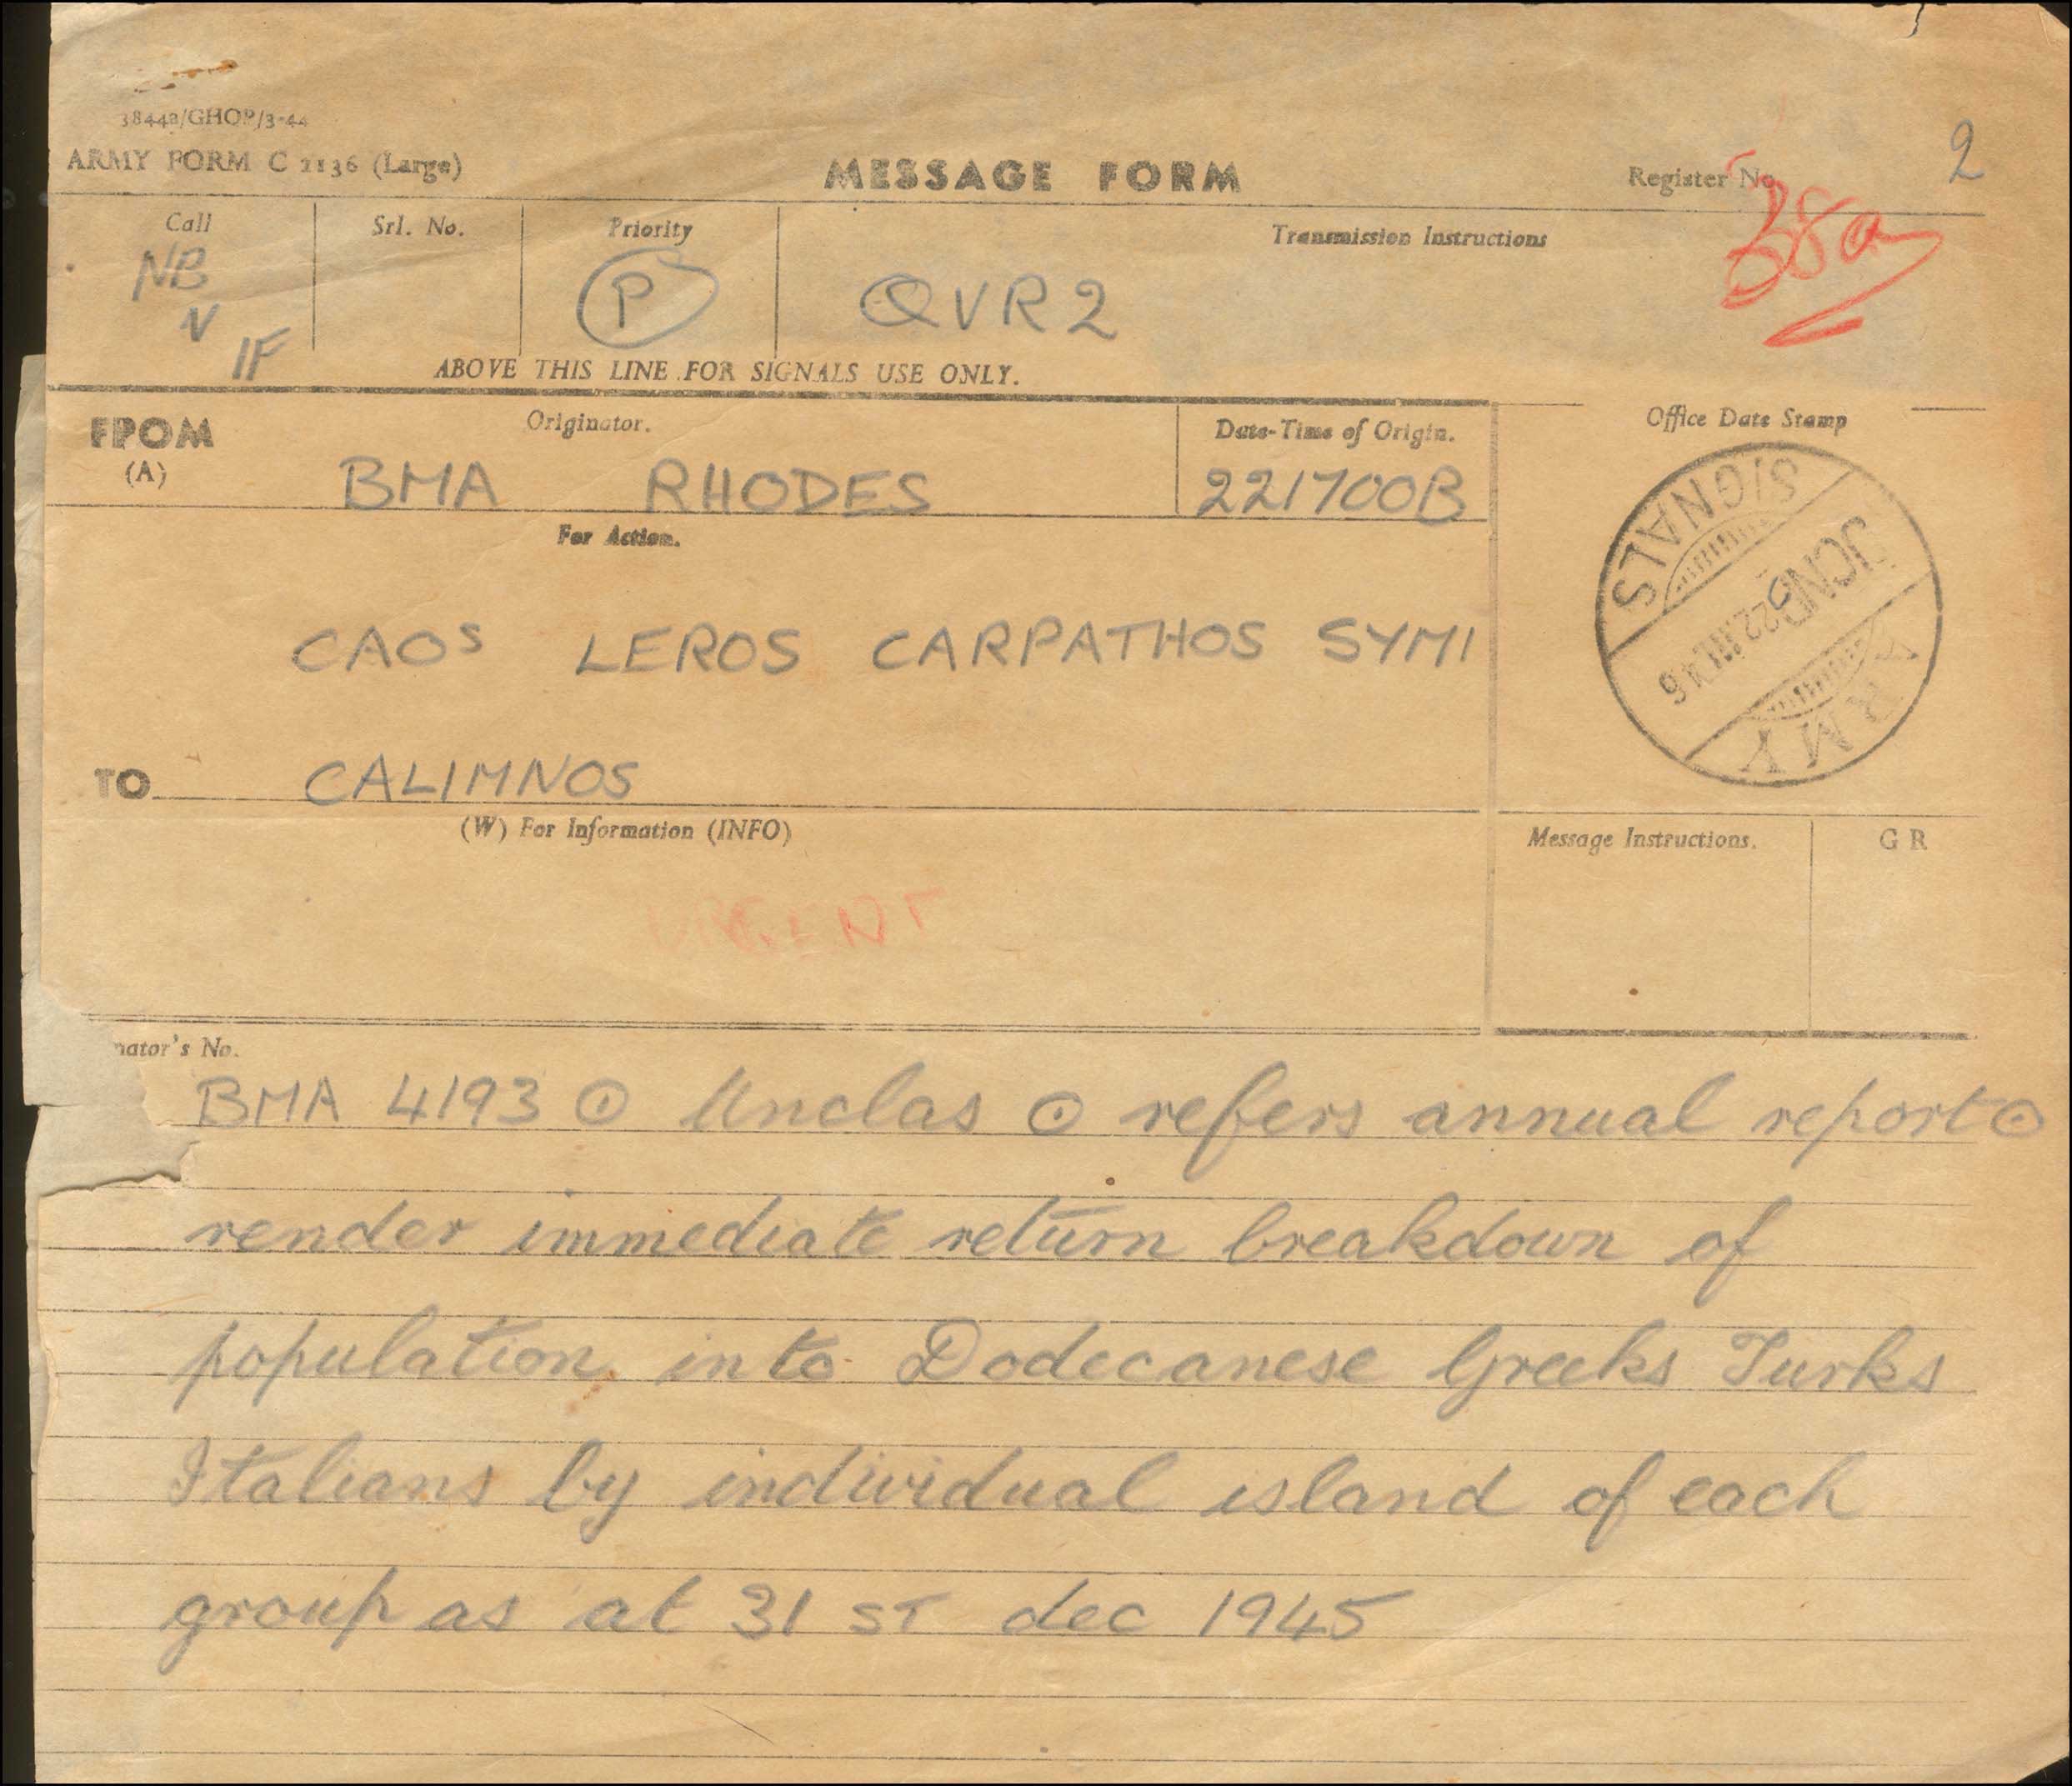 3844B/GHQP/3-44
ARMY FORM C 2136 (Large)
MESSAGE FORM
Register No.
2
38a
Call
Srl. No.
Priority
Transmission Instructions
NB
V
IF
P
QVR2
ABOVE THIS LINE FOR SIGNALS USE ONLY.
FROM
(A)
Originator.
Date-Time of Origin.
Office Date Stamp
BMA RHODES
221700B
For Action.
ARMY SIGNALS
JCNB
22.III.46
CAOs LEROS CARPATHOS SYMI
TO
CALIMNOS
(W) For Information (INFO)
Message Instructions.
G R
URGENT
nator's No.
BMA 4193 ⊙ Unclas ⊙ refers annual report ⊙
render immediate return breakdown of
population into Dodecanese Greeks Turks
Italians by individual island of each
group as at 31 ST dec 1945